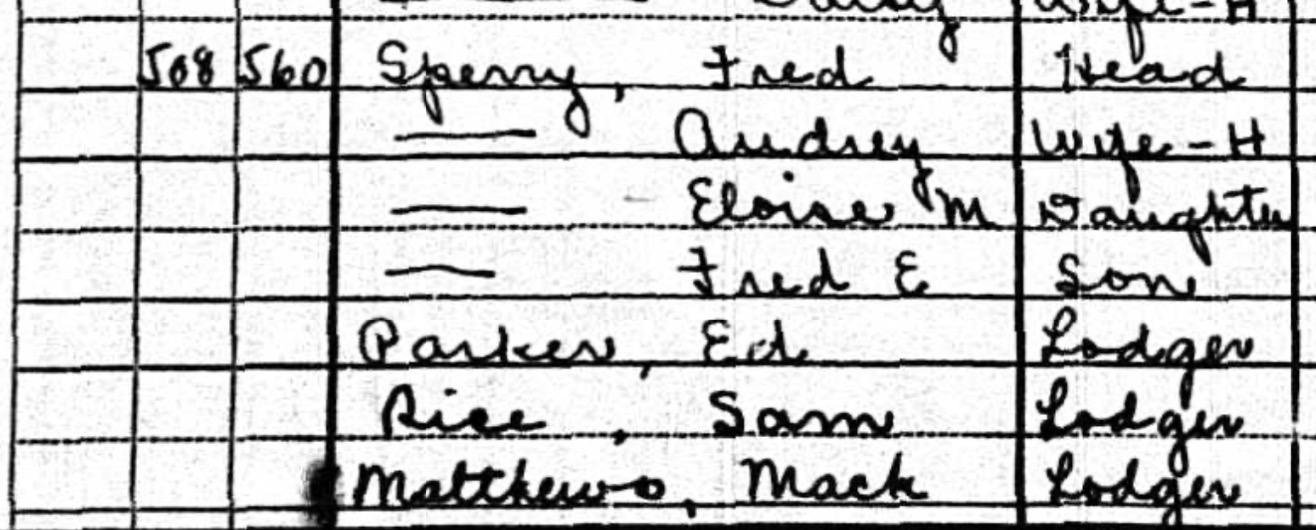 Daisy Wife-H
508 560 Sperry, Fred Head
— Audrey Wife-H
— Eloise M Daughter
— Fred E Son
Parker, Ed Lodger
Rice, Sam Lodger
Matthews, Mack Lodger